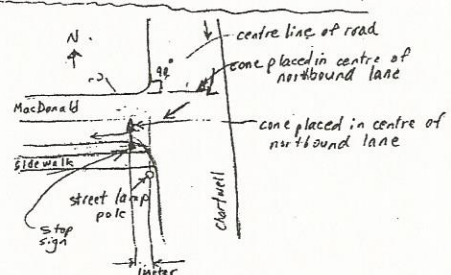 centre line of road
N.
90°
cone placed in centre of
northbound lane
MacDonald
cone placed in centre of
northbound lane
sidewalk
street lamp
pole
Chartwell
Stop
sign
1 meter